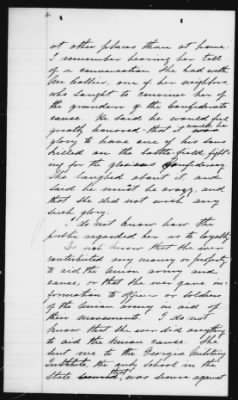 at other places than at home.
I remember hearing her tell
of a conversation she had with
Mr Collier, one of her neighbors,
who sought to convince her of
the grandeur of the Confederate
cause. He said he would feel
greatly honored - that it would be
glory to have one of his sons
killed on the battle field, fight-
ing for the glorious Confederacy.
She laughed about it and
said he must be crazy, and
that she did not wish any
such glory.
I do not know how the
public regarded her as to loyalty.
I do not know that she ever
contributed any money or property
to aid the Union army and
cause, or that she ever gave in-
formation to officers or soldiers
of the Union Army in aid of
their movements. I do not
know that she ever did anything
to aid the Union cause. She
sent me to the Georgia Military
Institute, the only school in the
State, was secure against